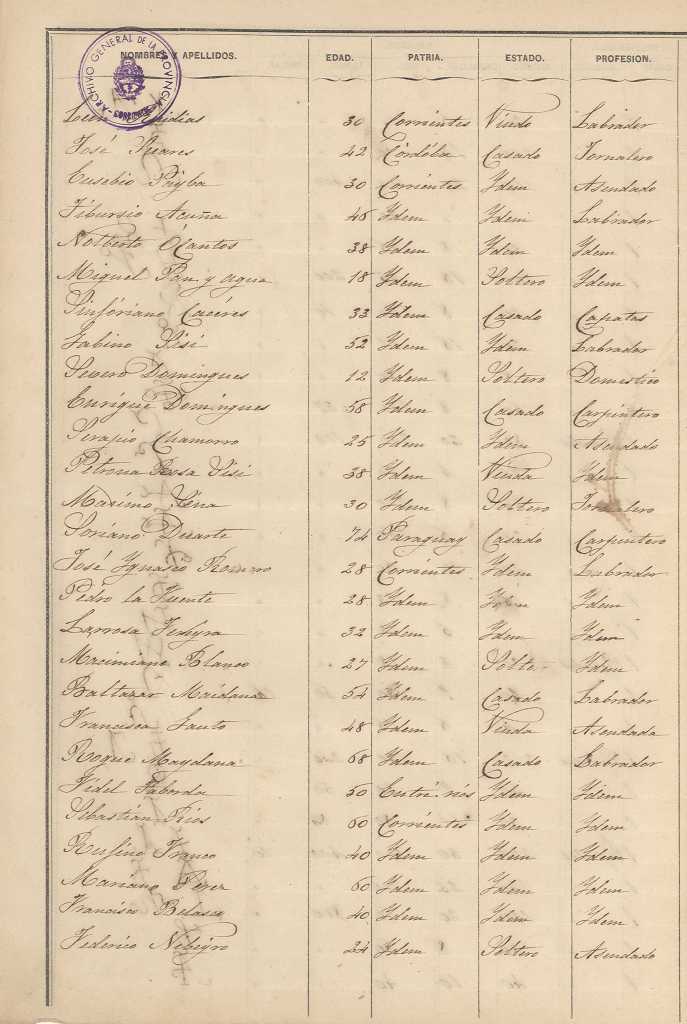 ARCHIVO GENERAL DE LA PROVINCIA CORRIENTES
NOMBRES Y APELLIDOS. EDAD. PATRIA. ESTADO. PROFESION.
30 Corrientes Viudo Labrador
José Suares 42 Córdóba Casado Jornalero
Eusebio Payba 30 Corrientes Ydem Asendado
Tibursio Acuña 46 Ydem Ydem Labrador
Nolberto Ocantos 38 Ydem Ydem Ydem
Miguel Pan y agua 18 Ydem Soltero Ydem
Sinfóriano Cacéres 33 Ydem Casado Capatas
Sabino Sisi 52 Ydem Ydem Labrador
Severo Domingues 12 Ydem Soltero Domestico
Enrique Domingues 58 Ydem Casado Carpintero
Serapio Chamorro 25 Ydem Ydem Asendado
Petrona Rosa Sisi 38 Ydem Viuda Ydem
Maximo 30 Ydem Soltero Jornalero
Soriano Duarte 74 Paraguay Casado Carpintero
José Ygnasio Romero 28 Corrientes Ydem Labrador
Pedro la Fuente 28 Ydem Ydem Ydem
Larrosa 32 Ydem Ydem Ydem
Macimiano Blanco 27 Ydem Solte- Ydem
Baltazar Maidana 54 Ydem Casado Labrador
Francisca Sauto 48 Ydem Viuda Asendada
Roque Maydana 68 Ydem Casado Labrador
Fidel Taborda 50 Entre-rios Ydem Ydem
Sebastián Rios 60 Corrientes Ydem Ydem
Rufino Franco 40 Ydem Ydem Ydem
Mariano Perez 60 Ydem Ydem Ydem
Francisco Belasco 40 Ydem Ydem Ydem
Federico Nibeyro 24 Ydem Soltero Asendado